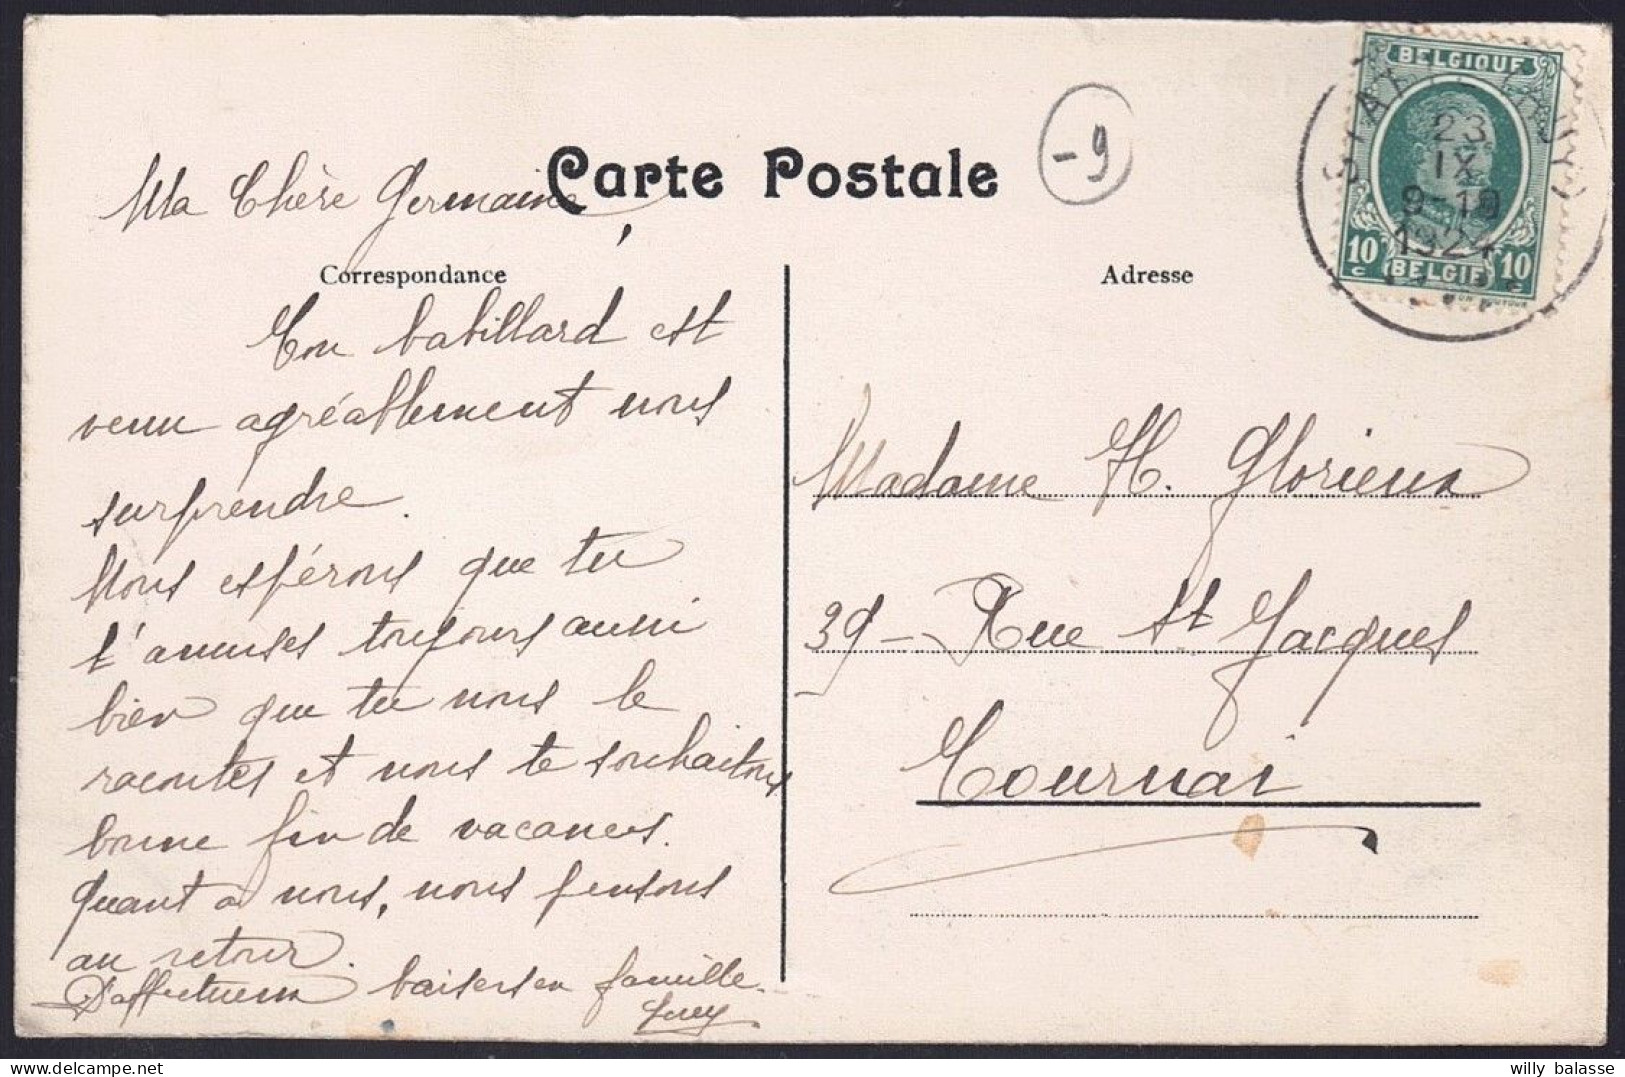 Carte Postale
-9
BELGIQUE
23
IX
9-10
1924
10 c BELGIË 10 c
Ma Chère Germaine,
Correspondance
Adresse
Ton babillard est
venu agréablement nous
surprendre.
Nous espérons que tu
t'amuses toujours aussi
bien que tu nous le
racontes et nous te souhaitons
bonne fin de vacances.
Quant à nous, nous pensons
au retour.
D'affectueux baisers en famille.
Madame H. Glorieux
39 - Rue St Jacques
Tournai
willy balasse